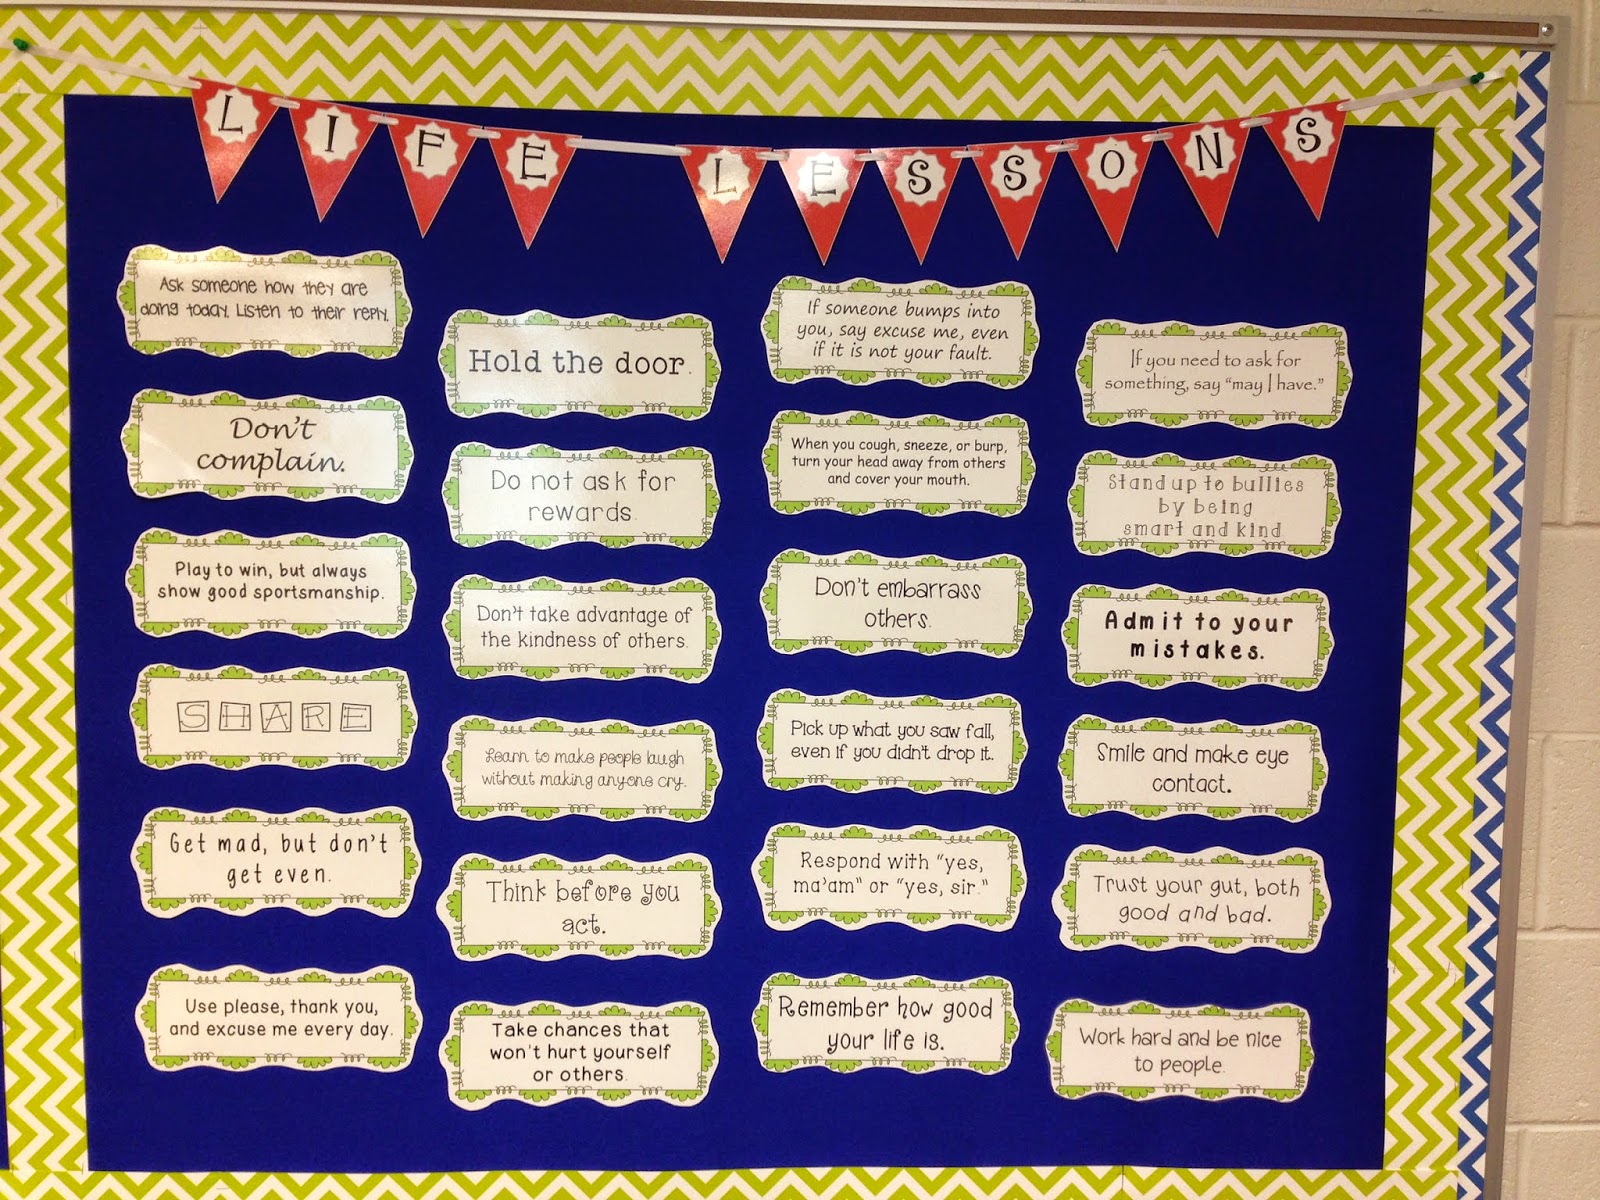 LIFE LESSONS
Ask someone how they are
doing today. Listen to their reply.
Don't
complain.
Play to win, but always
show good sportsmanship.
SHARE
Get mad, but don't
get even.
Use please, thank you,
and excuse me every day.
Hold the door.
Do not ask for
rewards.
Don't take advantage of
the kindness of others.
Learn to make people laugh
without making anyone cry.
Think before you
act.
Take chances that
won't hurt yourself
or others.
If someone bumps into
you, say excuse me, even
if it is not your fault.
When you cough, sneeze, or burp,
turn your head away from others
and cover your mouth.
Don't embarrass
others.
Pick up what you saw fall,
even if you didn't drop it.
Respond with "yes,
ma'am" or "yes, sir."
Remember how good
your life is.
If you need to ask for
something, say "may I have."
Stand up to bullies
by being
smart and kind
Admit to your
mistakes.
Smile and make eye
contact.
Trust your gut, both
good and bad.
Work hard and be nice
to people.